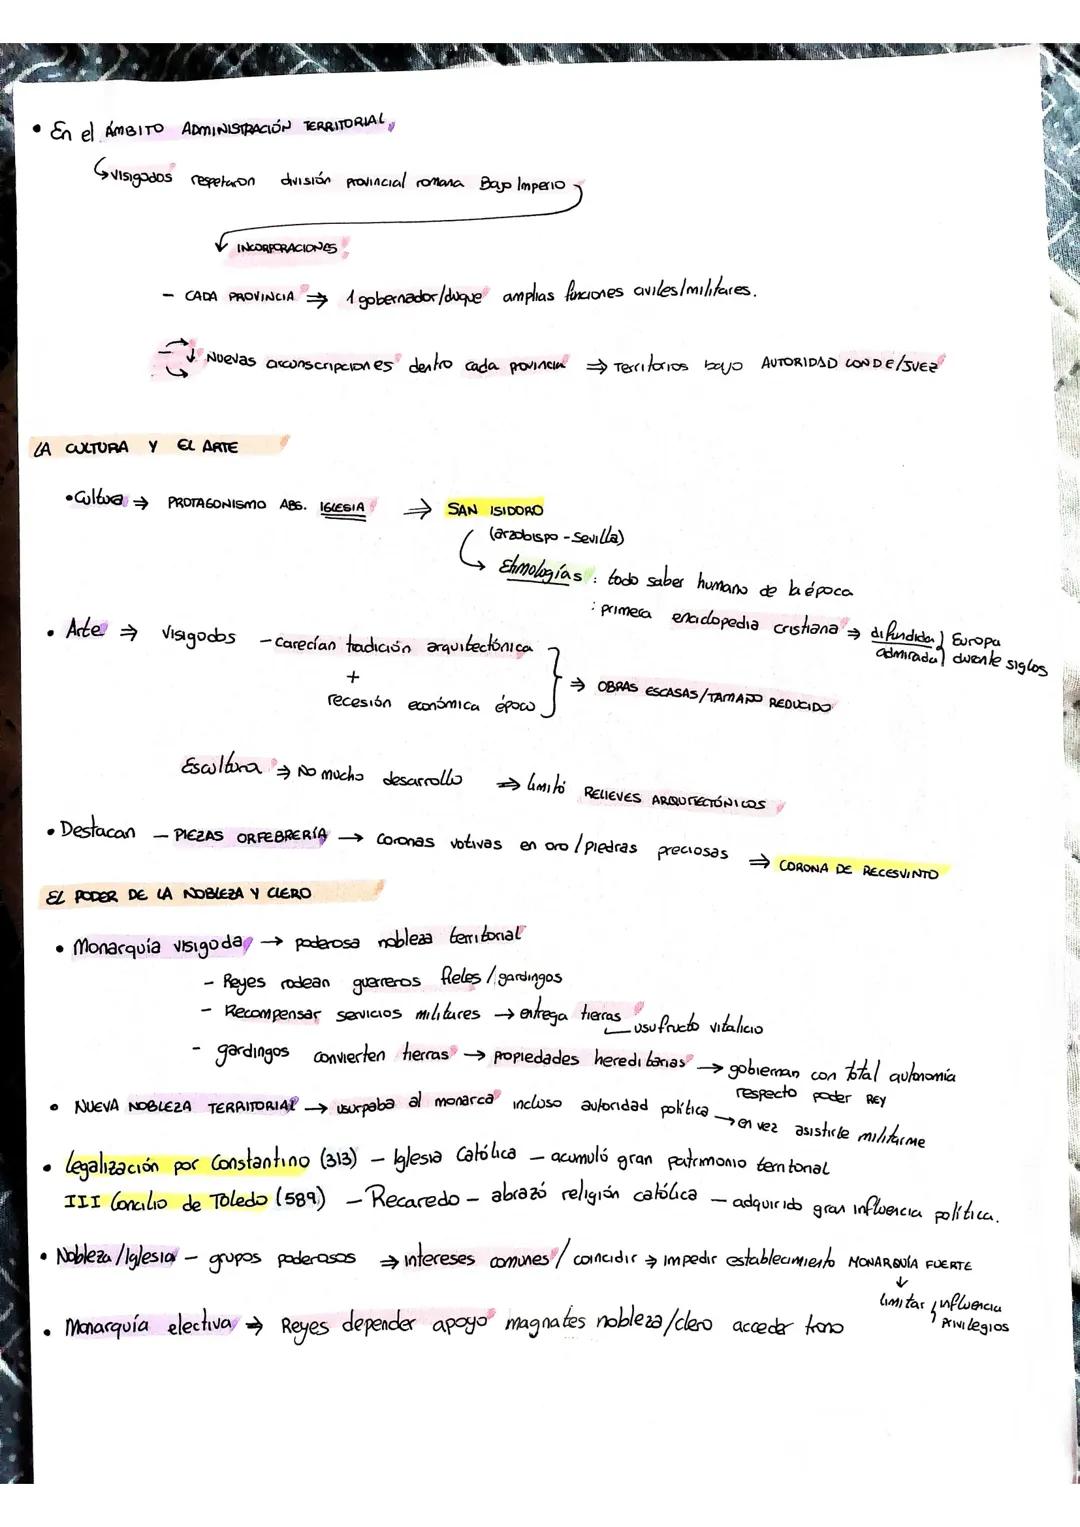 • En el ÁMBITO ADMINISTRACIÓN TERRITORIAL,
↳ visigodos respetaron división provincial romana Bajo Imperio
↓ INCORPORACIONES:
- CADA PROVINCIA ⇒ 1 gobernador/duque amplias funciones civiles/militares.
- Nuevas circunscripciones dentro cada provincia ⇒ Territorios bajo AUTORIDAD CONDE/JUEZ
LA CULTURA Y EL ARTE
• Cultura ⇒ PROTAGONISMO ABS. IGLESIA ⇒ SAN ISIDORO
(arzobispo - Sevilla)
↳ Etimologías : todo saber humano de la época
: primera enciclopedia cristiana ⇒ difundida } Europa
admirada } durante siglos
• Arte ⇒ visigodos - carecían tradición arquitectónica
+
recesión económica época } ⇒ OBRAS ESCASAS/TAMAÑO REDUCIDO
Escultura ⇒ No mucho desarrollo ⇒ limitó RELIEVES ARQUITECTÓNICOS
• Destacan - PIEZAS ORFEBRERÍA → coronas votivas en oro/piedras preciosas ⇒ CORONA DE RECESVINTO
EL PODER DE LA NOBLEZA Y CLERO
• Monarquía visigoda, → poderosa nobleza territorial
- Reyes rodean guerreros fieles/gardingos
- Recompensar servicios militares → entrega tierras
usufructo vitalicio
- gardingos convierten tierras → propiedades hereditarias → gobiernan con total autonomía
respecto poder REY
• NUEVA NOBLEZA TERRITORIAL → usurpaba al monarca incluso autoridad política → en vez asistirle militarme
• Legalización por Constantino (313) - Iglesia Católica - acumuló gran patrimonio territorial
III Concilio de Toledo (589) - Recaredo - abrazó religión católica - adquirido gran influencia política.
• Nobleza/Iglesia - grupos poderosos ⇒ intereses comunes / coincidir ⇒ impedir establecimiento MONARQUÍA FUERTE
↓
limitar influencia
privilegios
• Monarquía electiva, ⇒ Reyes depender apoyo magnates nobleza/clero acceder trono